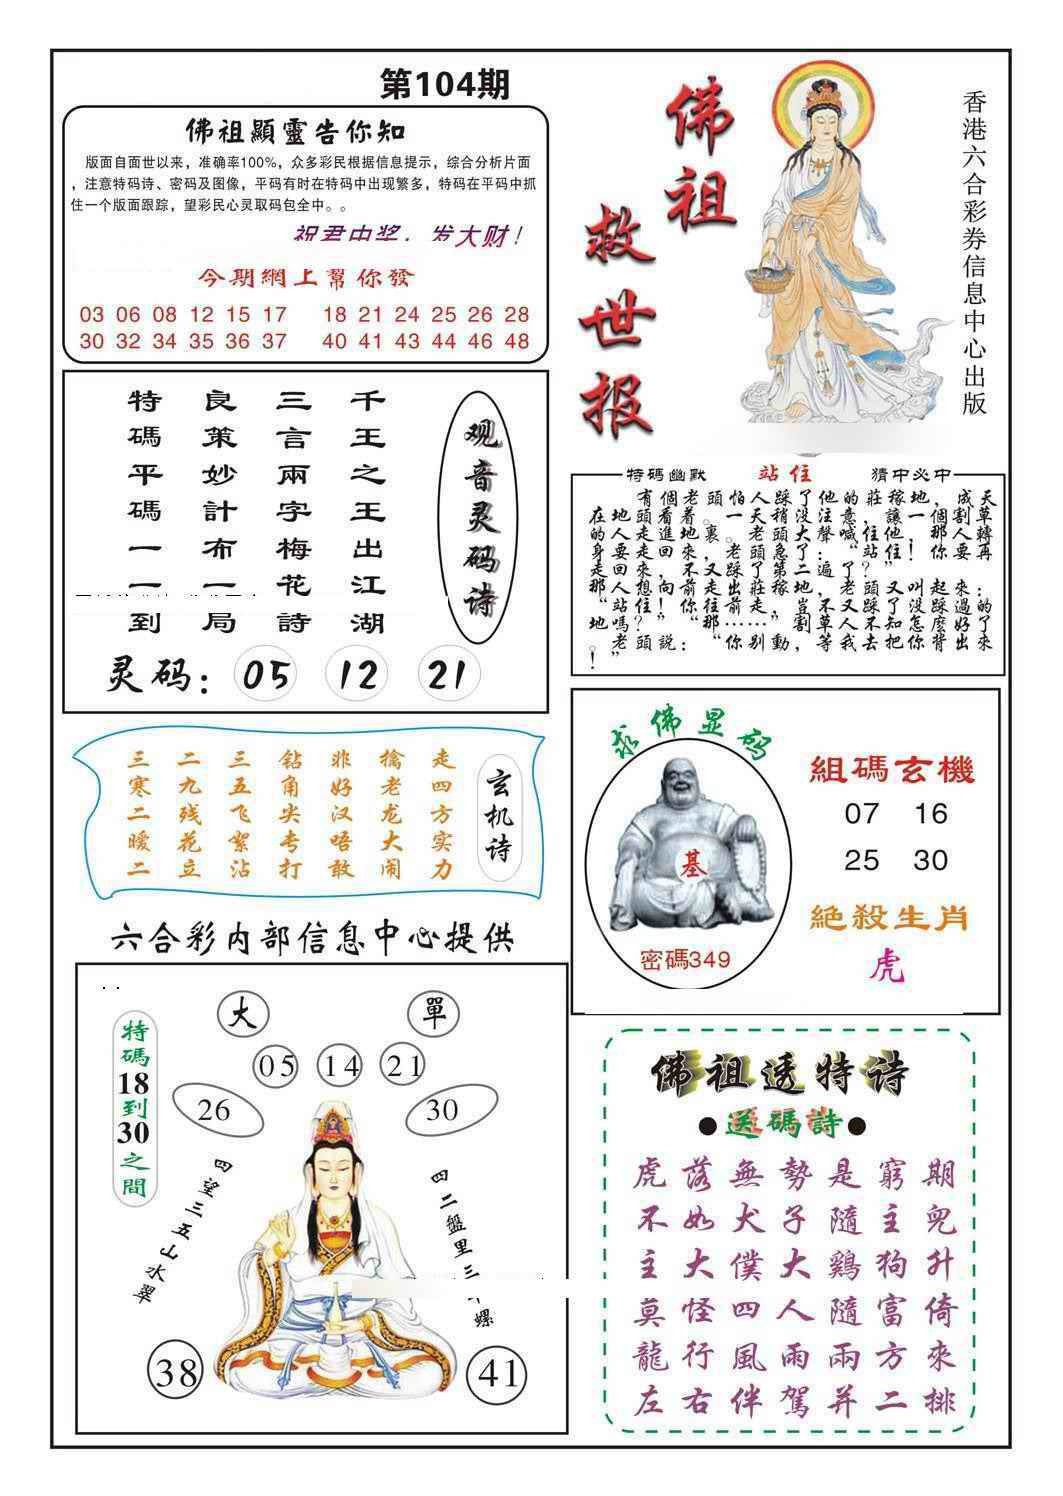 第104期
佛祖顯靈告你知
版面自面世以来，准确率100%，众多彩民根据信息提示，综合分析片面
，注意特码诗、密码及图像，平码有时在特码中出现繁多，特码在平码中抓
住一个版面跟踪，望彩民心灵取码包全中。。
祝君中奖，发大财！
今期網上幫你發
03 06 08 12 15 17 18 21 24 25 26 28
30 32 34 35 36 37 40 41 43 44 46 48
佛祖
救世报
香港六合彩券信息中心出版
观音灵码诗
千王之王出江湖
三言兩字梅花詩
良策妙計布一局
特碼平碼一一到
灵码：05 12 21
特碼幽默 站住 猜中必中
有個老頭怕人踩了他的莊稼地，成天
在地頭看着。一天稍没注意，讓一個割草
的人走進地裏，老頭大聲喊住他！那人轉
身要走回來，老頭急了：“站住！你要再
走回來，不又踩了第二遍了？”又叫起來：
那人想向前走出莊稼地，老頭又了没踩過的
“站住！你往前走，豈不又踩了知怎麽好了
地嗎？”那……”割草人不去把你背出來
老頭説：“你别動，等我
！”
玄机诗
走四方实力
擒老龙大闹
非好汉唔敢
钻角尖专打
三五飞絮沾
二九残花立
三寒二暧二
求佛显码
基
密碼349
組碼玄機
07 16
25 30
絕殺生肖
虎
六合彩内部信息中心提供
特碼18到30之間
大 單
05 14 21
26 30
四望三五山水翠
38 41
佛祖透特诗
●送碼詩●
虎落無勢是窮期
不如犬子隨主兜
主大僕大鷄狗升
莫怪四人隨富倚
龍行風雨兩方來
左右伴駕并二排